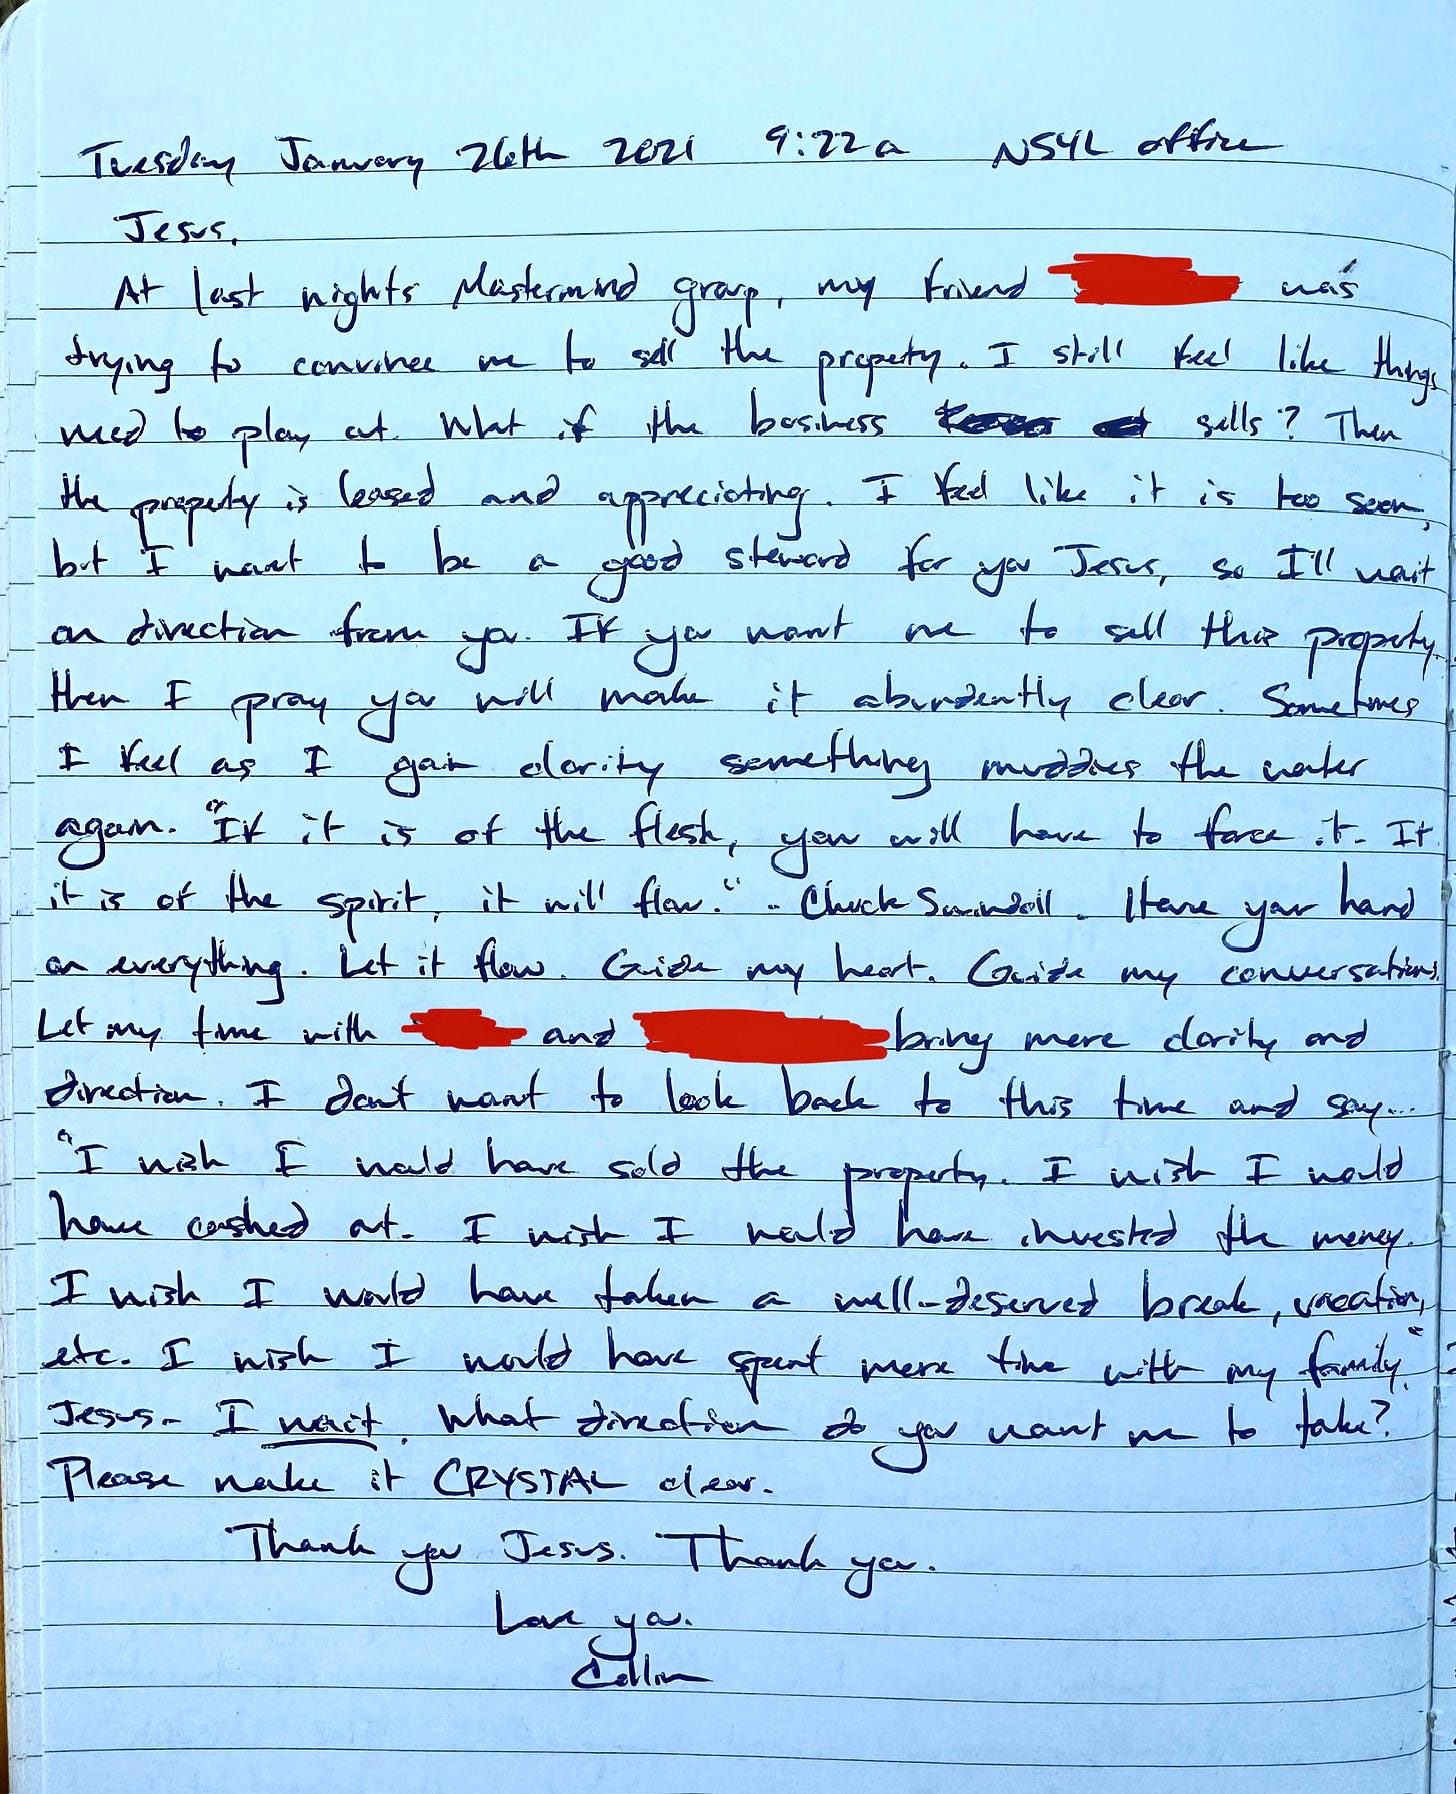 Tuesday January 26th 2021 9:22a NSYL office
Jesus,
At last nights Mastermind group, my friend was
trying to convince me to sell the property. I still feel like things
need to play out. What if the business sells? Then
the property is leased and appreciating. I feel like it is too soon,
but I want to be a good steward for you Jesus, so I'll wait
on direction from you. If you want me to sell this property
then I pray you will make it abundently clear. Sometimes
I feel as I gain clarity something muddies the water
again. "If it is of the flesh, you will have to force it. If
it is of the spirit, it will flow." - Chuck Swindoll. Have your hand
on everything. Let it flow. Guide my heart. Guide my conversations.
Let my time with and bring more clarity and
direction. I don't want to look back to this time and say...
"I wish I would have sold the property. I wish I would
have cashed out. I wish I would have invested the money.
I wish I would have taken a well-deserved break, vacation,
etc. I wish I would have spent more time with my family."
Jesus - I wait. What direction do you want me to take?
Please make it CRYSTAL clear.
Thank you Jesus. Thank you.
Love you.
Collin